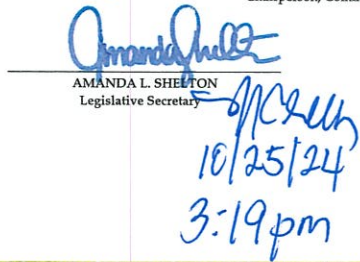 Amanda Shelton
AMANDA L. SHELTON
Legislative Secretary
10/25/24
3:19 pm